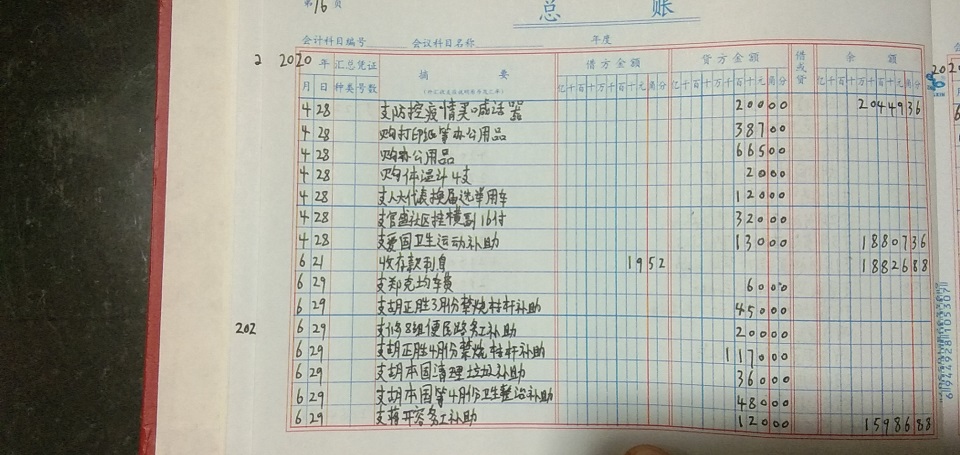 第16页
总 账
会计科目编号 会议科目名称 年度
2 2020 年 汇总凭证 摘 要 借方金额 贷方金额 借或贷 余 额
月 日 种类 号数 亿千百十万千百十元角分 亿千百十万千百十元角分 亿千百十万千百十元角分
4 28 支防控疫情买喊话器 20000 2044936
4 28 购打印纸等办公用品 38700
4 28 购办公用品 66500
4 28 购体温计4支 2000
4 28 支人大代表换届选举用车 12000
4 28 支官盛社区挂横副16付 32000
4 28 支爱国卫生运动补助 13000 1880736
6 21 收存款利息 1952 1882688
6 29 支郑克均车费 6000
6 29 支胡正胜3月份禁烧桔杆补助 45000
202 6 29 支修8组便民路务工补助 20000
6 29 支胡正胜4月份禁烧桔杆补助 117000
6 29 支胡本国清理垃圾补助 36000
6 29 支胡本国等4月份卫生整治补助 48000
6 29 支蒋开容务工补助 12000 1598688